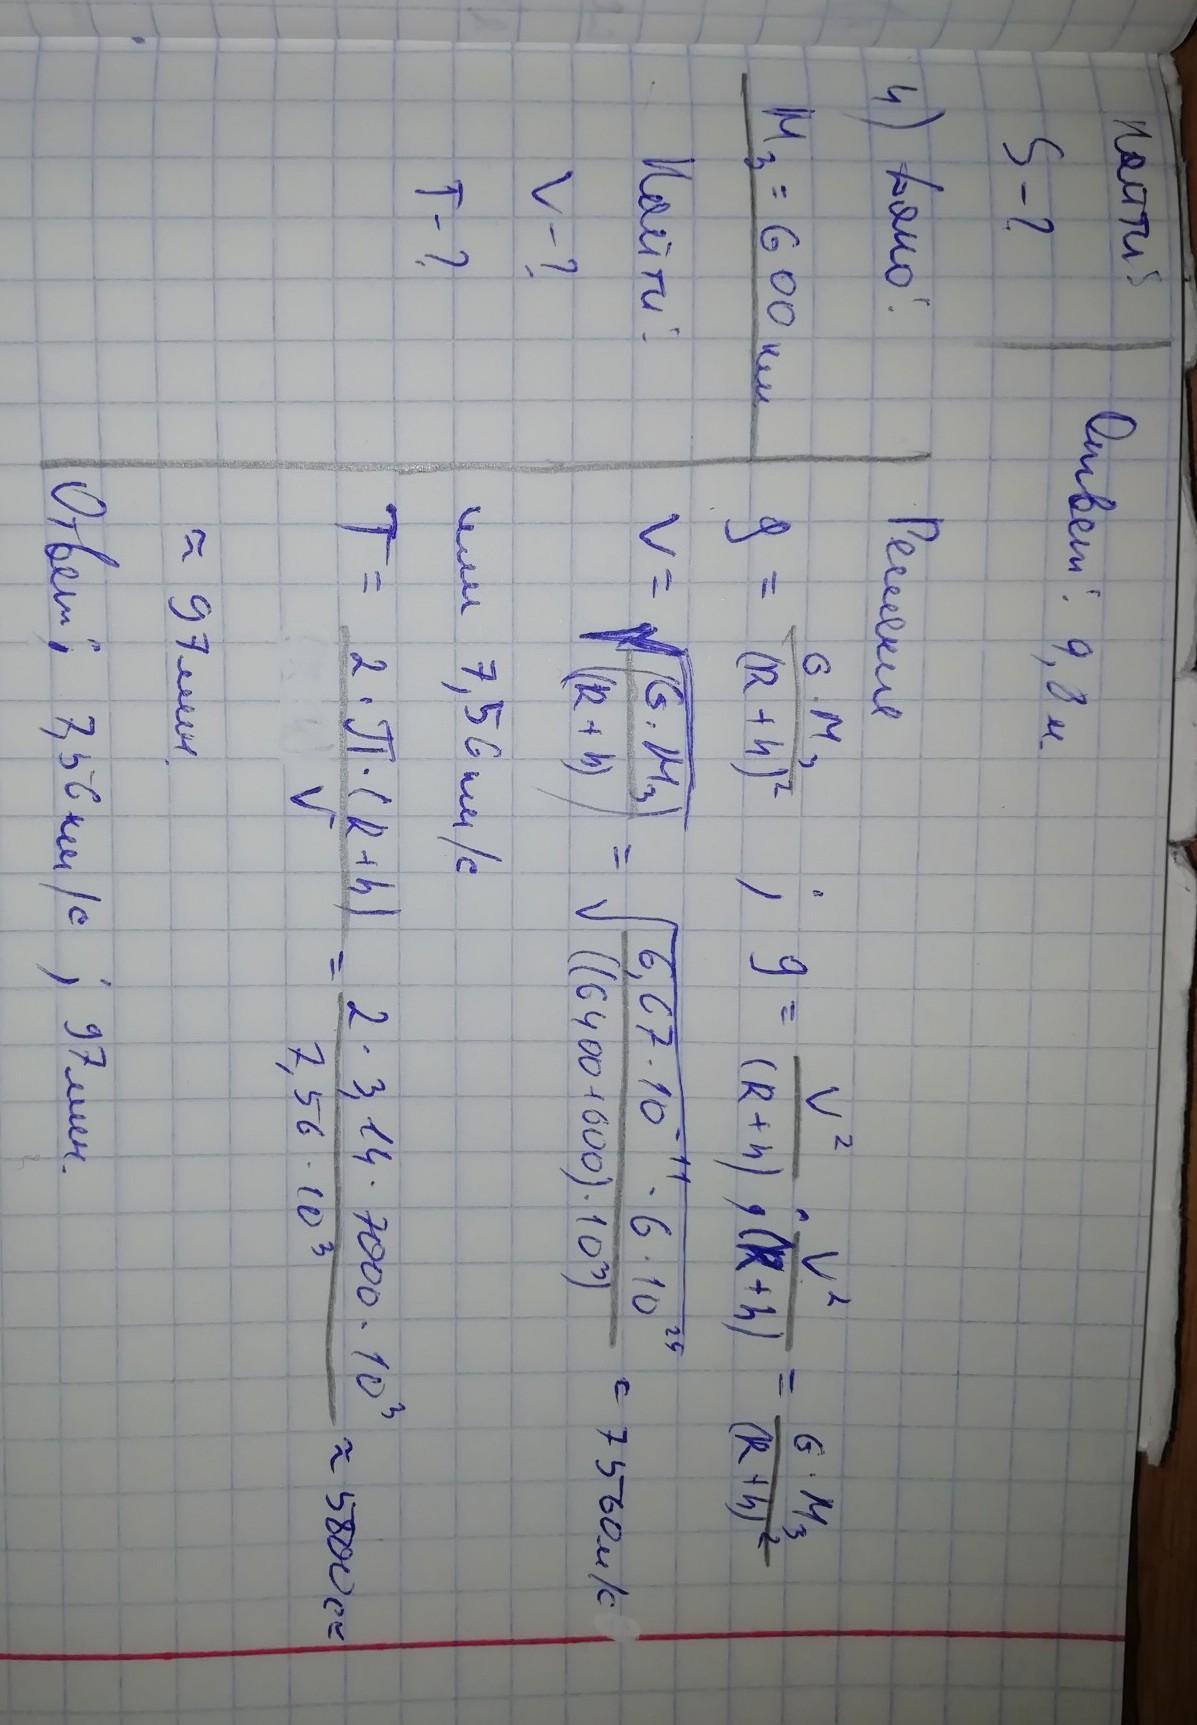 Найти:
S - ?
Ответ: 9,8 м.
4) Дано:
M₃ = 600 км
Найти:
V - ?
T - ?
Решение
g = G·M₃/(R+h)² ; g = V²/(R+h) ; V²/(R+h) = G·M₃/(R+h)²
V = √(G·M₃/(R+h)) = √(6,67·10⁻¹¹·6·10²⁴/((6400+600)·10³)) = 7560 м/с
или 7,56 км/с
T = 2·П·(R+h)/V = 2·3,14·7000·10³/7,56·10³ ≈ 5800 с ≈
≈ 97 мин.
Ответ: 7,56 км/с ; 97 мин.